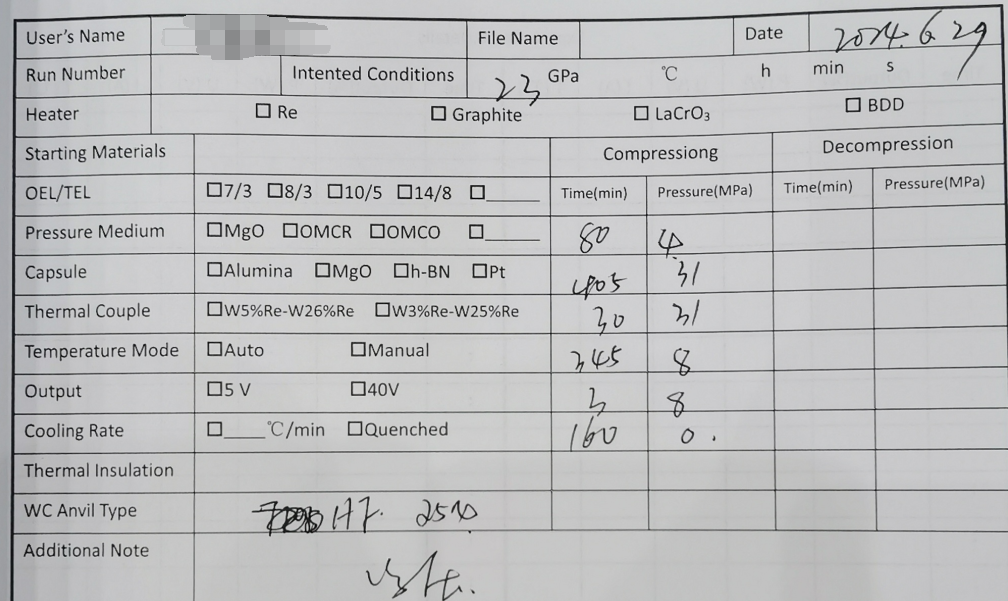 User's Name File Name Date 2024.6.29
Run Number Intented Conditions 23 GPa ℃ h min s
Heater ☐ Re ☐ Graphite ☐ LaCrO₃ ☐ BDD
Starting Materials Compressiong Decompression
OEL/TEL ☐7/3 ☐8/3 ☐10/5 ☐14/8 ☐______ Time(min) Pressure(MPa) Time(min) Pressure(MPa)
Pressure Medium ☐MgO ☐OMCR ☐OMCO ☐______ 80 4
Capsule ☐Alumina ☐MgO ☐h-BN ☐Pt 405 31
Thermal Couple ☐W5%Re-W26%Re ☐W3%Re-W25%Re 30 31
Temperature Mode ☐Auto ☐Manual 345 8
Output ☐5 V ☐40V 3 8
Cooling Rate ☐____℃/min ☐Quenched 160 0.
Thermal Insulation
WC Anvil Type
Additional Note